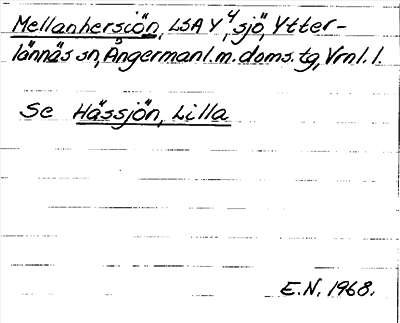 Mellanhersjön, LSA Y⁴, sjö, Ytter-
lännäs sn, Ångermanl. m. doms. tg, Vrnl. l.
Se Hässjön, Lilla
E.N. 1968.